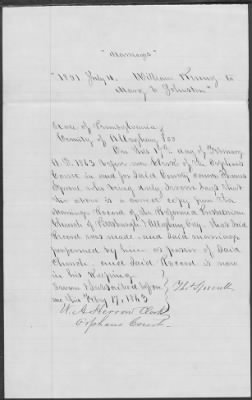 "Marriages"
"1851 July 10. William Kinney to
Mary E Johnston"
State of Pennsylvania,
County of Allegheny } ss
On this 17th day of February
A.D. 1863 before me Clerk of the Orphans
Court in and for Said County came Thomas
Sproull who being duly Sworn Says that
the above is a correct copy from the
Marriage Record of the Reformed Presbyterian
Church of Pittsburgh & Allegheny Cong. that Said
Record was made and Said marriage
performed by him as pastor of Said
Church and Said Record is now
in his Keeping.
Sworn & Subscribed before } Thos Sproull
me this Feby 17, 1863
W. A. Herron Clerk
Orphans Court